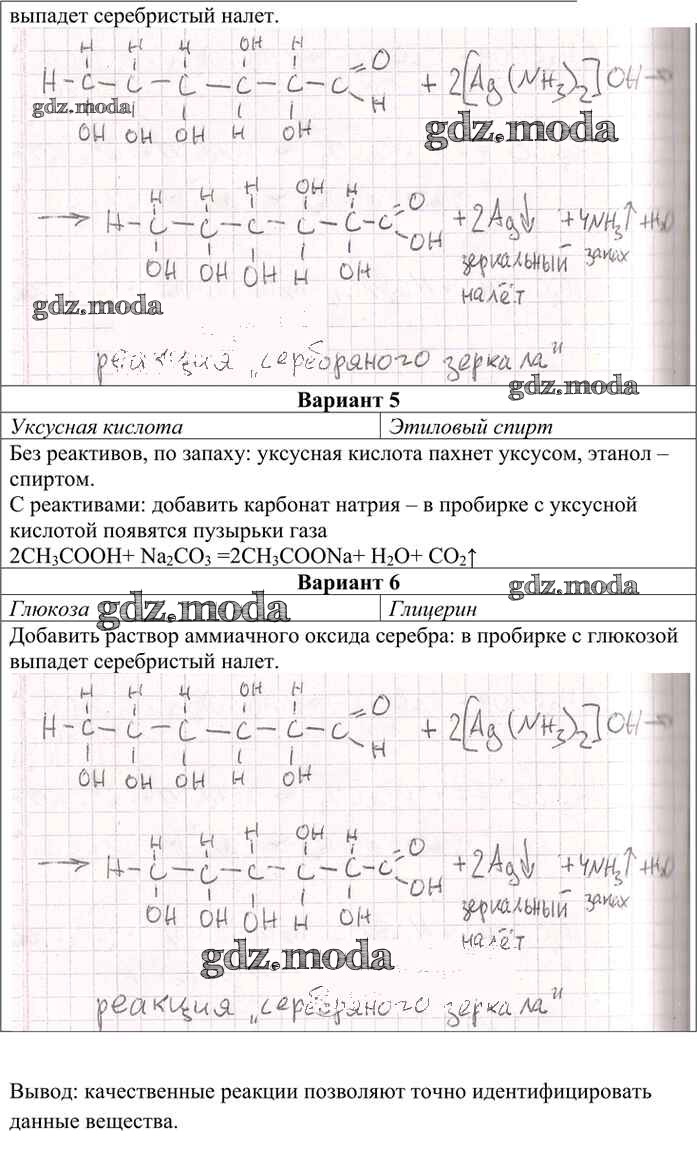 выпадет серебристый налет.
H H H OH H
H – C – C – C – C – C – C =O + 2[Ag(NH3)2]OH →
H
gdz.moda
OH OH OH H OH
gdz.moda
H H H OH H
→ H – C – C – C – C – C – C =O + 2Ag↓ + 4NH3↑ + H2O
OH
OH OH OH H OH
зеркальный запах
налёт
gdz.moda
реакция „серебряного зеркала"
gdz.moda
Вариант 5
Уксусная кислота Этиловый спирт
Без реактивов, по запаху: уксусная кислота пахнет уксусом, этанол –
спиртом.
С реактивами: добавить карбонат натрия – в пробирке с уксусной
кислотой появятся пузырьки газа
2CH₃COOH+ Na₂CO₃ =2CH₃COONa+ H₂O+ CO₂↑
Вариант 6
gdz.moda
Глюкоза gdz.moda Глицерин
Добавить раствор аммиачного оксида серебра: в пробирке с глюкозой
выпадет серебристый налет.
H H H OH H
H – C – C – C – C – C – C =O + 2[Ag(NH3)2]OH →
H
OH OH OH H OH
H H H OH H
→ H – C – C – C – C – C – C =O + 2Ag↓ + 4NH3↑ + H2O
OH
OH OH OH H OH
зеркальный запах
налёт
gdz.moda
реакция „серебряного зеркала"
Вывод: качественные реакции позволяют точно идентифицировать
данные вещества.